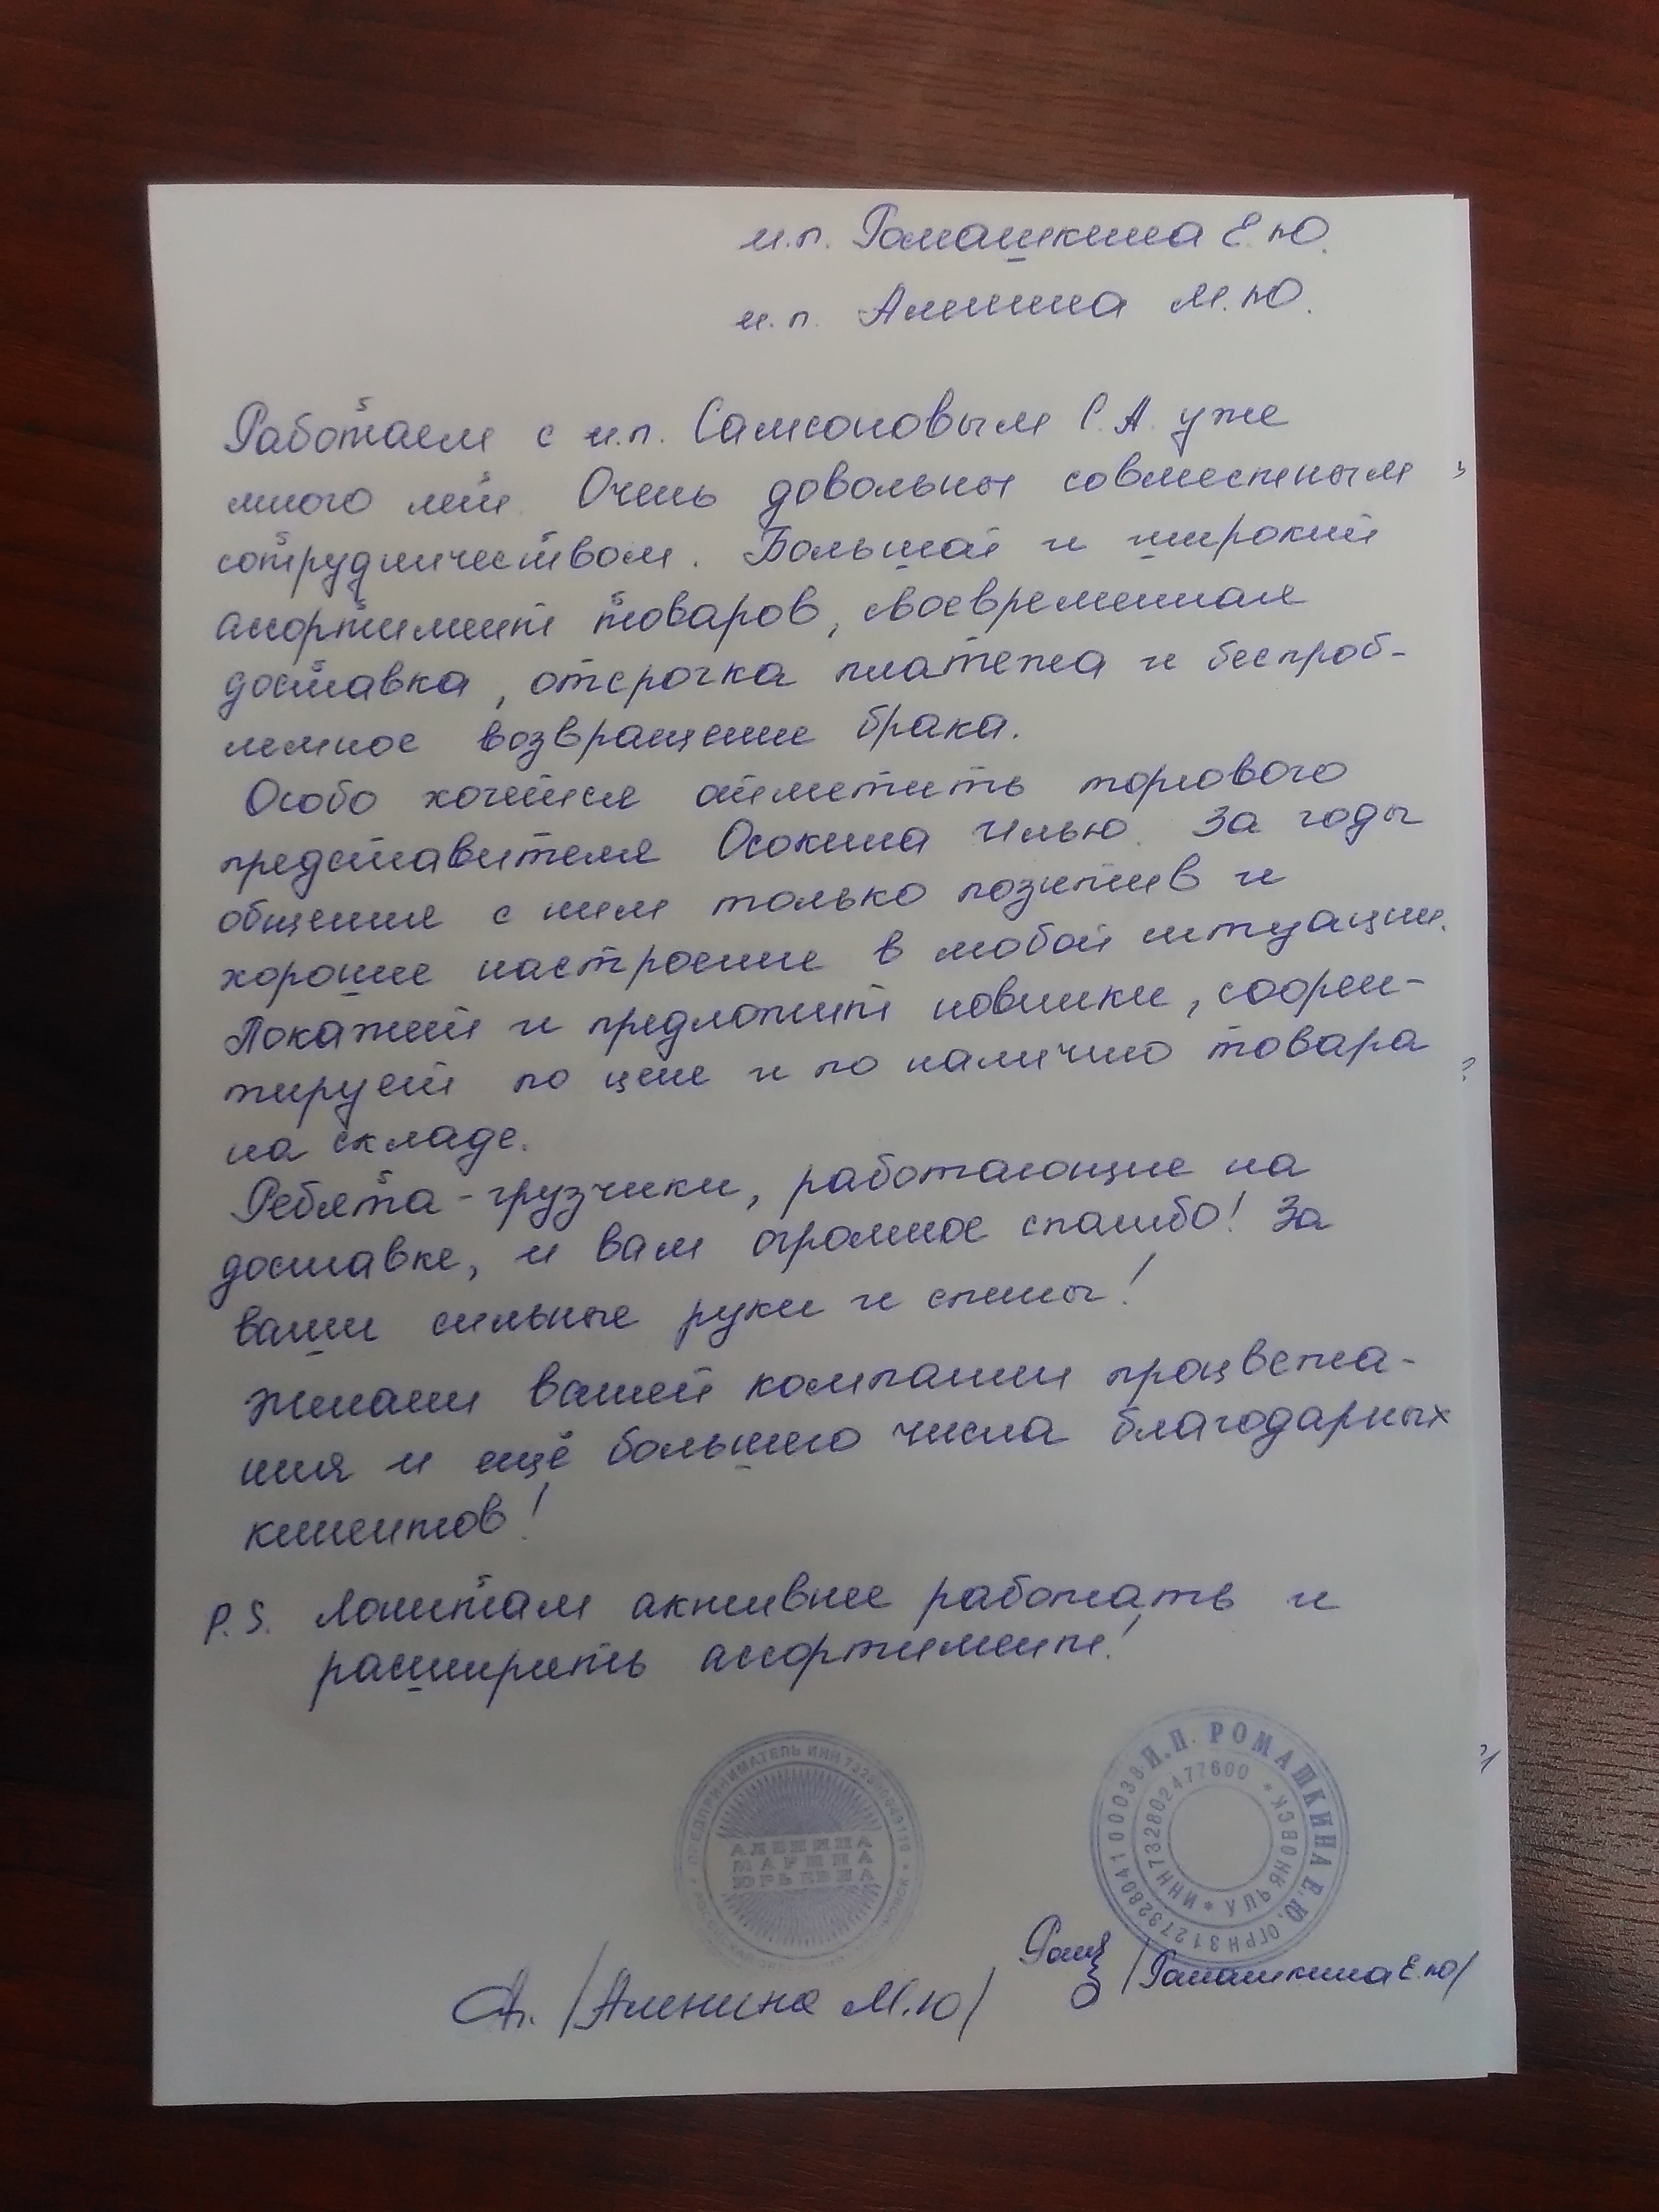 и.п. Ромашкина Е.Ю.
и.п. Аленина М.Ю.
Работаем с и.п. Самсоновым С.А. уже
много лет. Очень довольны совместным
сотрудничеством. Большой и широкий
ассортимент товаров, своевременная
доставка, отсрочка платежа и беспроб-
лемное возвращение брака.
Особо хочется отметить торгового
представителя Осокина Илью. За годы
общения с ним только позитив и
хорошее настроение в любой ситуации.
Покажет и предложит новинки, сориен-
тирует по цене и по наличию товара
на складе.
Ребята-грузчики, работающие на
доставке, и вам огромное спасибо! За
ваши сильные руки и спины!
Желаем вашей компании процвета-
ния и ещё большего числа благодарных
клиентов!
P.S. активнее работать и
расширить ассортимент!
ПРЕДПРИНИМАТЕЛЬ ИНН
АЛЕНИНА
МАРИНА
ЮРЬЕВНА
И.П. РОМАШКИНА Е.Ю. ОГРН312732804100038
ИНН732802477600 * УЛЬЯНОВСК *
/Аленина М.Ю/
/Ромашкина Е.Ю/